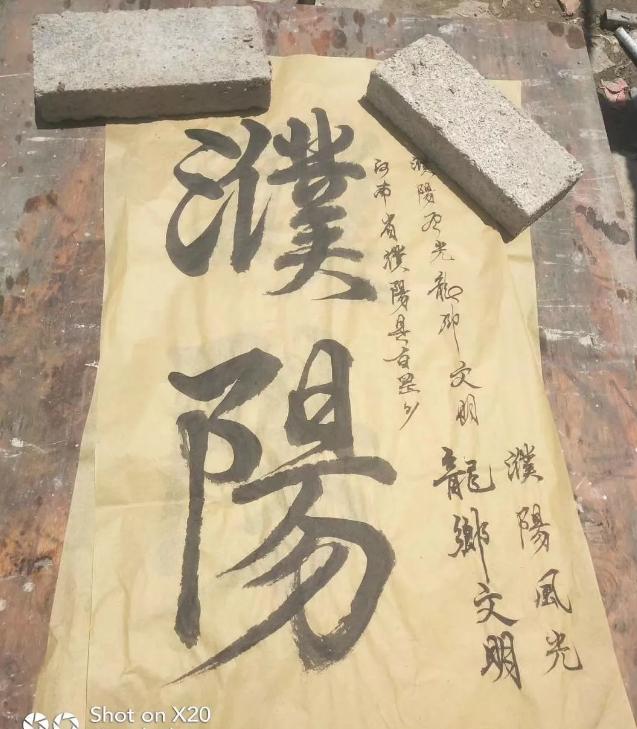 濮陽
濮陽風光龍鄉文明
河南省濮陽县
濮陽風光
龍鄉文明
Shot on X20